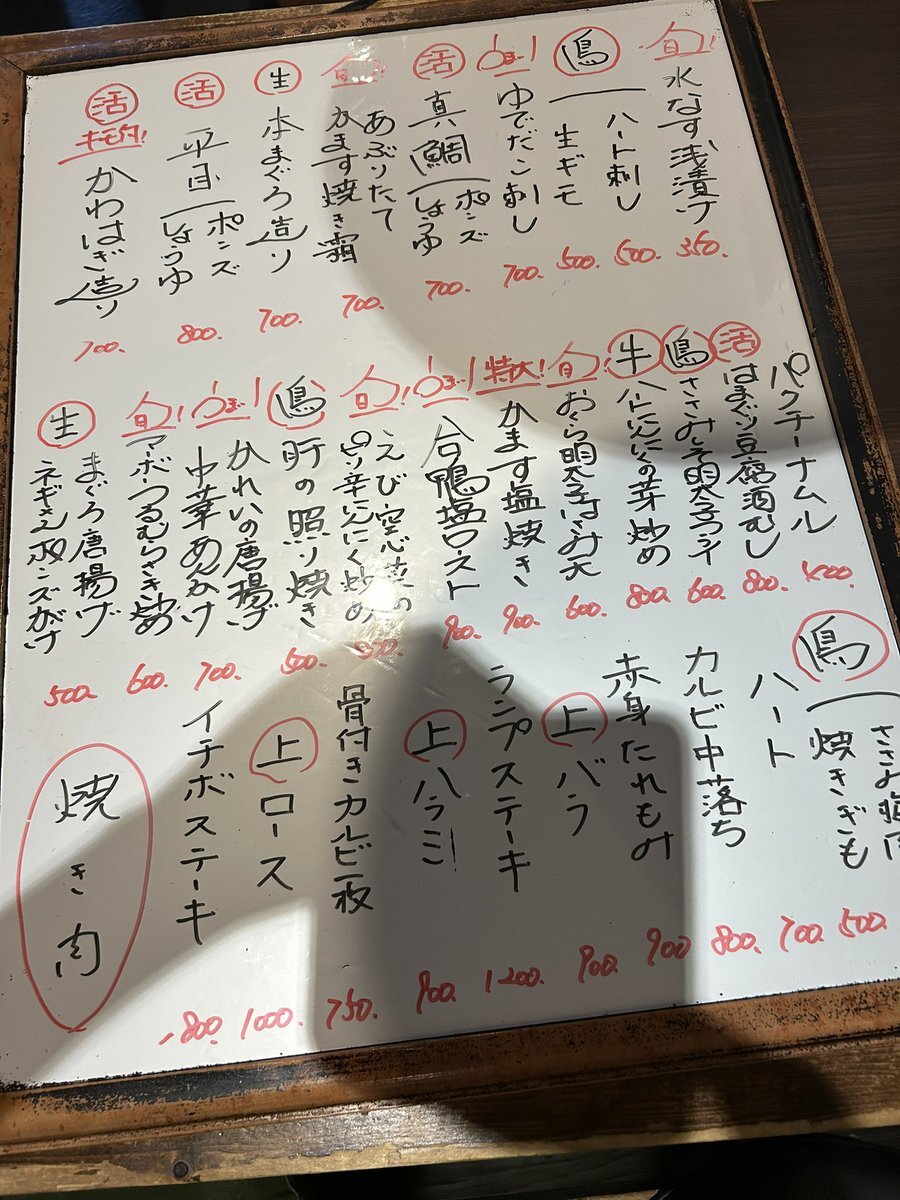 旬! 水なす浅漬け 350.
鳥 ハート刺し 500.
生ギモ 500.
うまー! ゆでだこ刺し 700.
活 真鯛 ポンズ しょうゆ 700.
旬! あぶりたて かます焼き霜 700.
生 本まぐろ造り 700.
活 平目 ポンズ しょうゆ 800.
活 キモ付! かわはぎ造り 700.
パクチーナムル
活 はまぐり豆腐酒むし 800.
鳥 ささみそ明太子フライ 600.
牛 ハートにんにくの芽炒め 800.
旬! おくら明太子はさみ天 600.
特大! かます塩焼き 900.
うまー! 合鴨塩ロースト 900.
旬! えび空心菜の ピリ辛にんにく炒め
鳥 肝の照り焼き 500.
うまー! かれいの唐揚げ 中華あんかけ 700.
旬! マーボーつるむらさき炒め 600.
生 まぐろ唐揚げ ネギさえポンズがけ 500.
鳥 ささみ
焼きぎも 500.
ハート 700.
カルビ中落ち 800.
赤身たれもみ 900
上バラ 900.
ランプステーキ 1200.
上ハラミ! 900.
骨付きカルビ一枚 750.
上ロース 1000.
イチボステーキ 1,800.
焼き肉